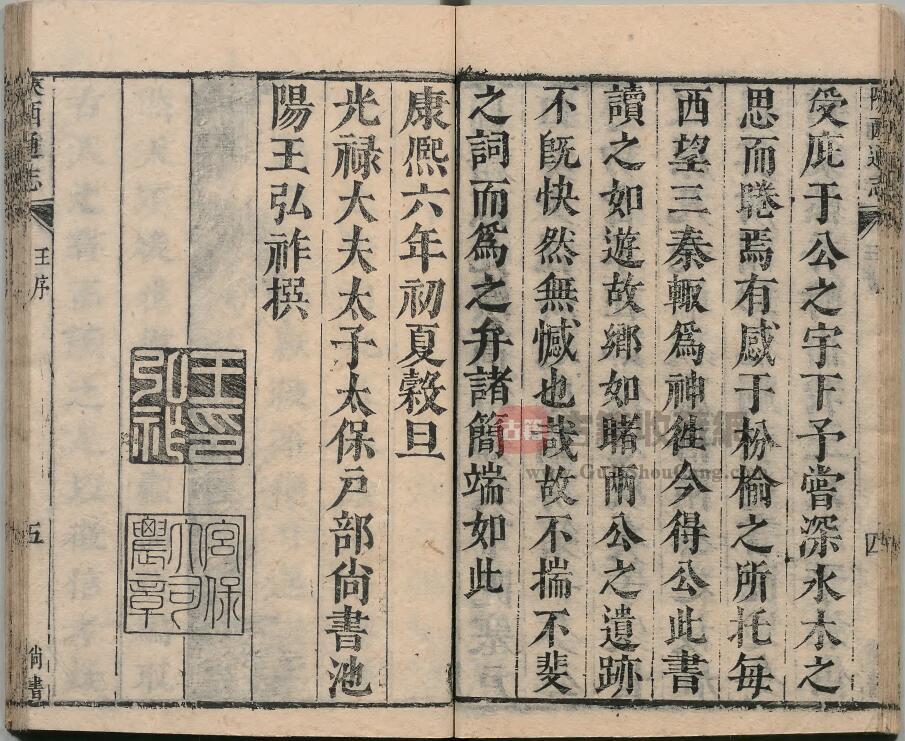 受庇于公之宇下予嘗深水木之
思而睠焉有感于枌榆之所托每
西望三秦輙爲神徃今得公此書
讀之如遊故鄉如睹兩公之遺跡
不旣快然無憾也哉故不揣不斐
之詞而爲之弁諸簡端如此
康熈六年初夏穀旦
光禄大夫太子太保戸部尙書池
陽王弘祚撰
王印弘祚
宮保大司農章
陝西通志
王序
五
尙書
陝西通志
四
古籍收藏網
www.GuJiShouCang.com